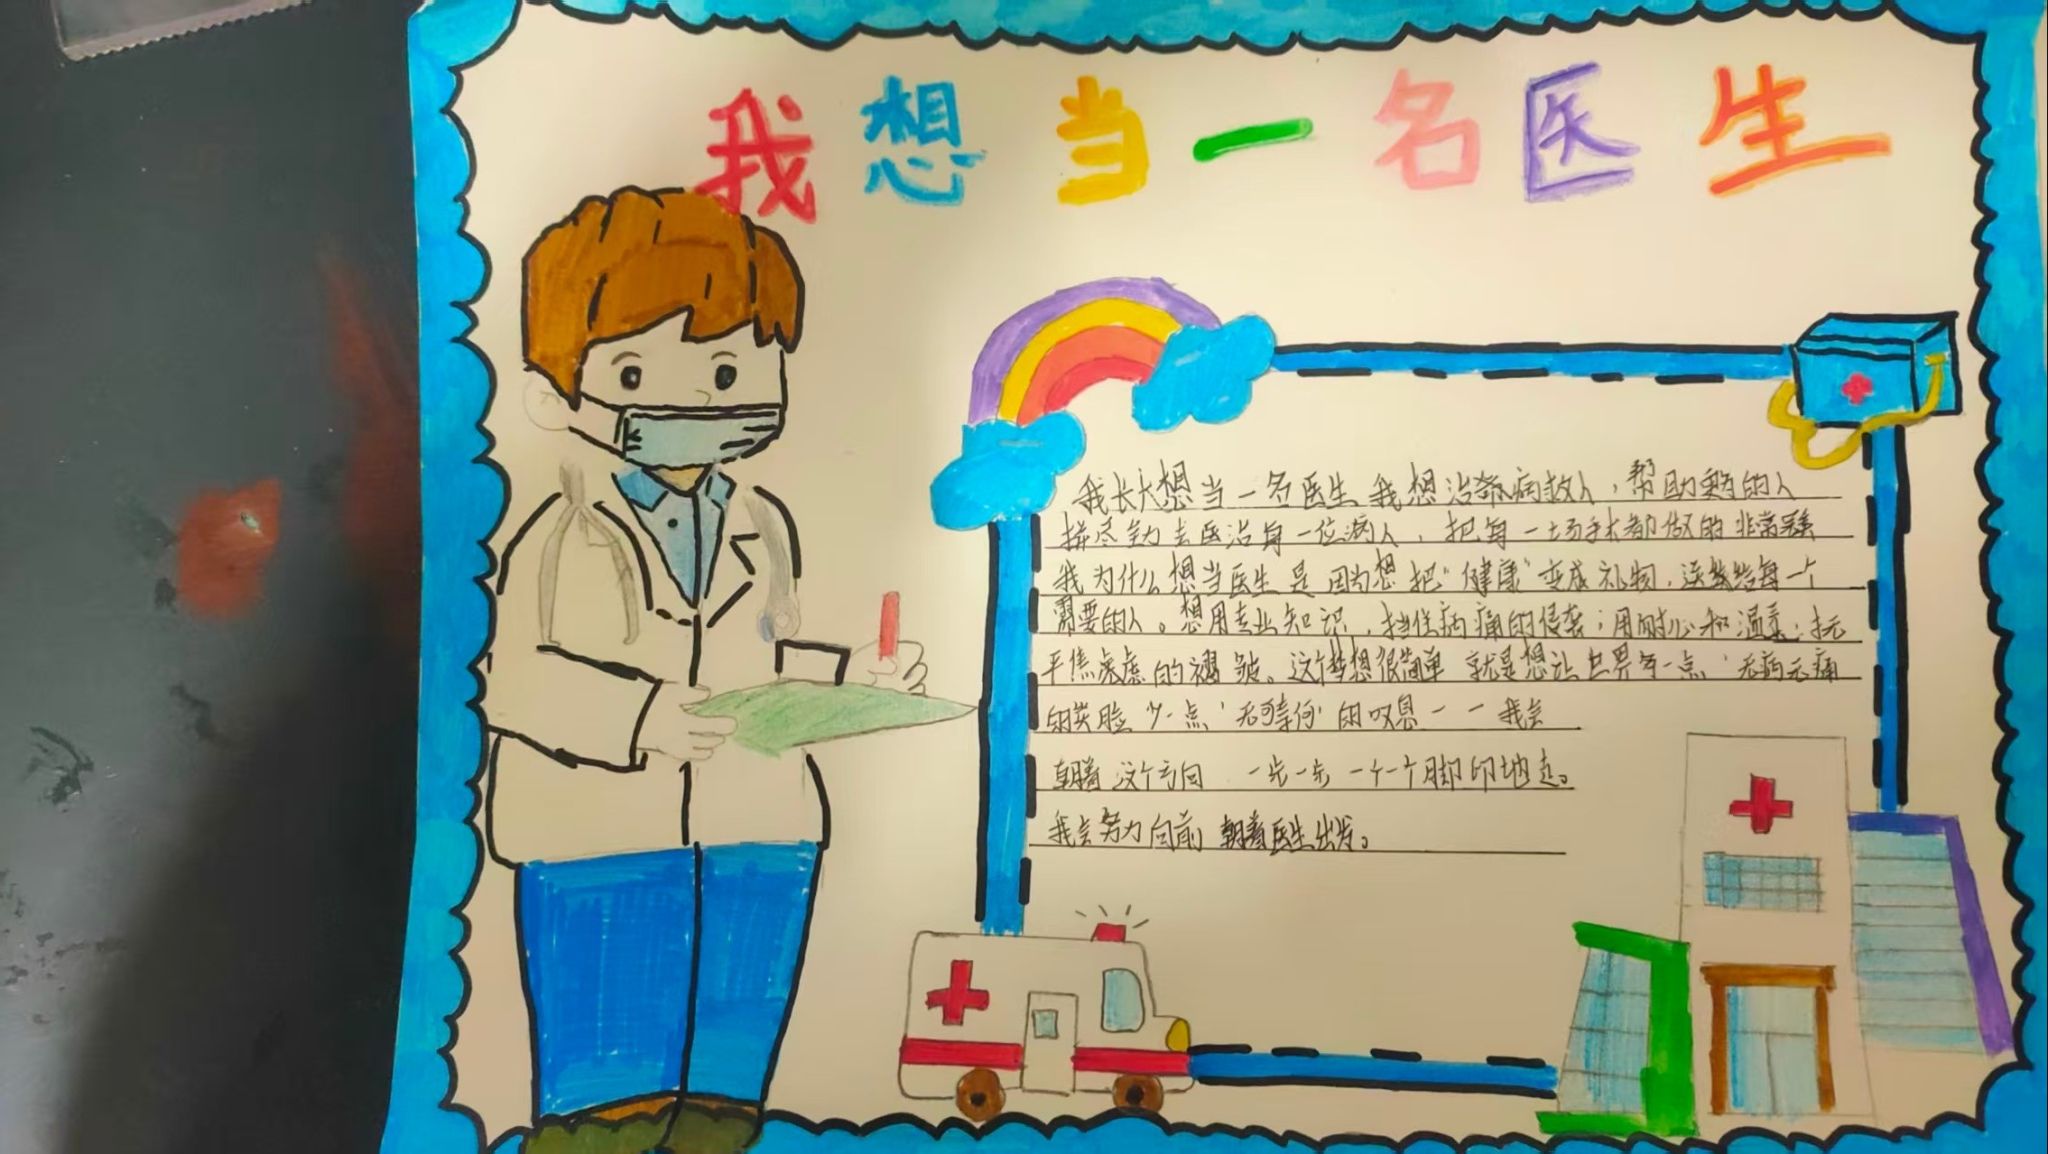 我想当一名医生
我长大想当一名医生 我想治病救人，帮助的人
拼尽全力去医治每一位病人，把每一场手术都做的非常
我为什么想当医生是因为想把“健康”变成礼物，送给每一个
需要的人。想用专业知识，挡住病痛的侵袭；用耐心和温柔；抚
平焦虑的褶皱。这个梦想很简单 就是想让世界多一点‘无病无痛
的笑脸 少一点‘无奈何’的叹息一一我会
朝着这个方向 一步一步 一个一个脚印地走。
我会努力向前 朝着医生出发。